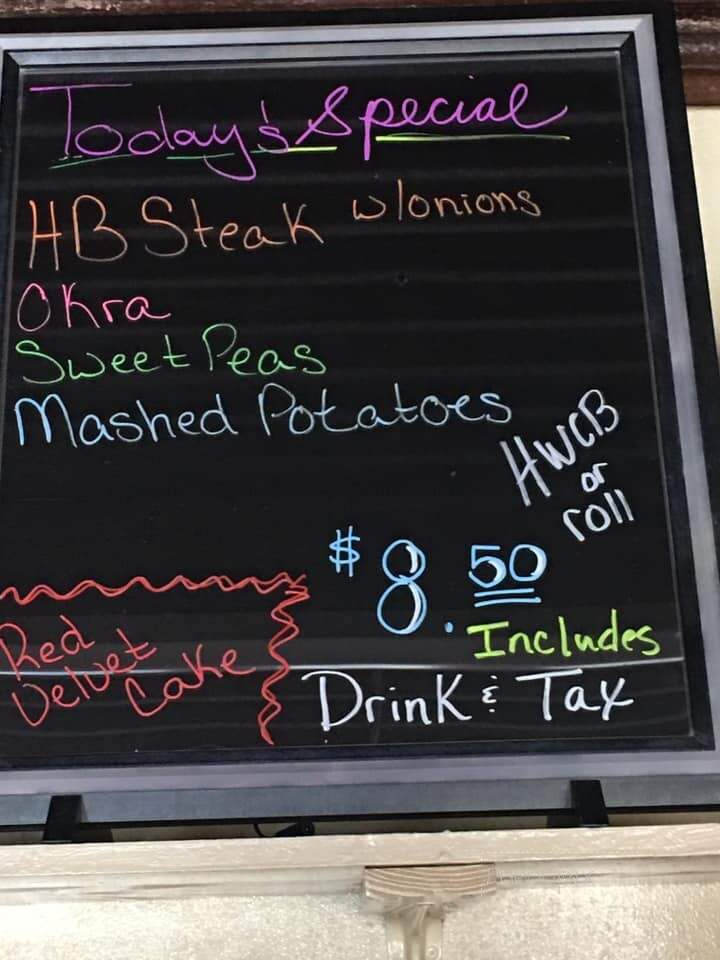 Today's Special
HB Steak w/onions
Okra
Sweet Peas
Mashed Potatoes
HWCB
or
roll
$8.50
Includes
Drink & Tax
Red
Velvet
Cake